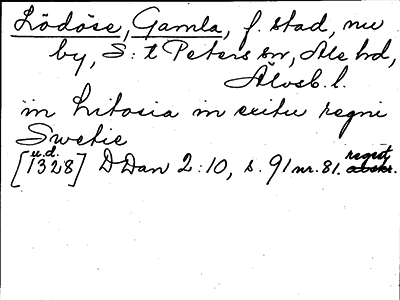 Lödöse, Gamla, f. stad, nu
by, S:t Peters sn, Ale hd,
Älvsb. l.
in Litosia in exitu regni
Swetie
u.d. regist
[1328] DDan 2:10, s. 91 nr. 81. abskr.